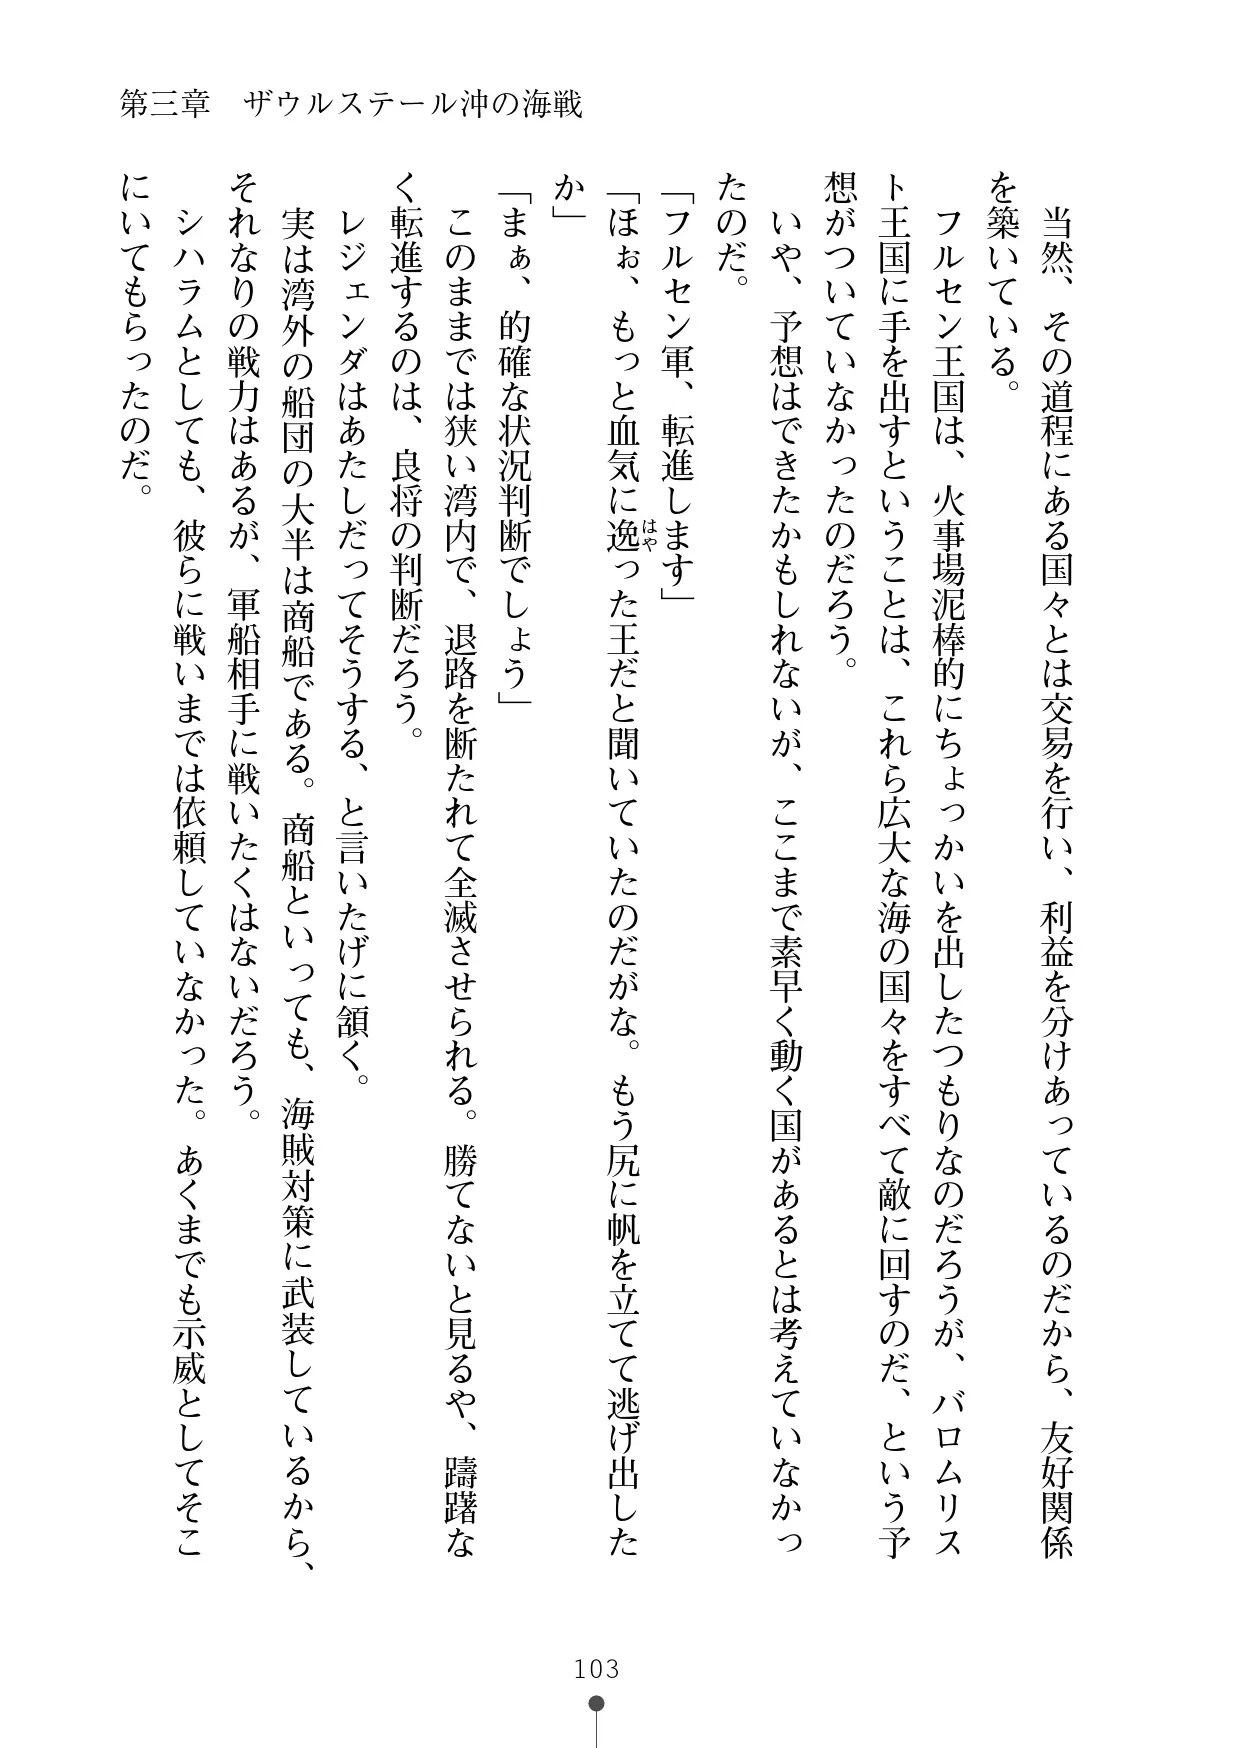 第三章　ザウルステール沖の海戦
　当然、その道程にある国々とは交易を行い、利益を分けあっているのだから、友好関係
を築いている。
　フルセン王国は、火事場泥棒的にちょっかいを出したつもりなのだろうが、バロムリス
ト王国に手を出すということは、これら広大な海の国々をすべて敵に回すのだ、という予
想がついていなかったのだろう。
　いや、予想はできたかもしれないが、ここまで素早く動く国があるとは考えていなかっ
たのだ。
「フルセン軍、転進します」
「ほぉ、もっと血気に逸はやった王だと聞いていたのだがな。もう尻に帆を立てて逃げ出した
か」
「まぁ、的確な状況判断でしょう」
　このままでは狭い湾内で、退路を断たれて全滅させられる。勝てないと見るや、躊躇な
く転進するのは、良将の判断だろう。
　レジェンダはあたしだってそうする、と言いたげに頷く。
　実は湾外の船団の大半は商船である。商船といっても、海賊対策に武装しているから、
それなりの戦力はあるが、軍船相手に戦いたくはないだろう。
　シハラムとしても、彼らに戦いまでは依頼していなかった。あくまでも示威としてそこ
にいてもらったのだ。
103